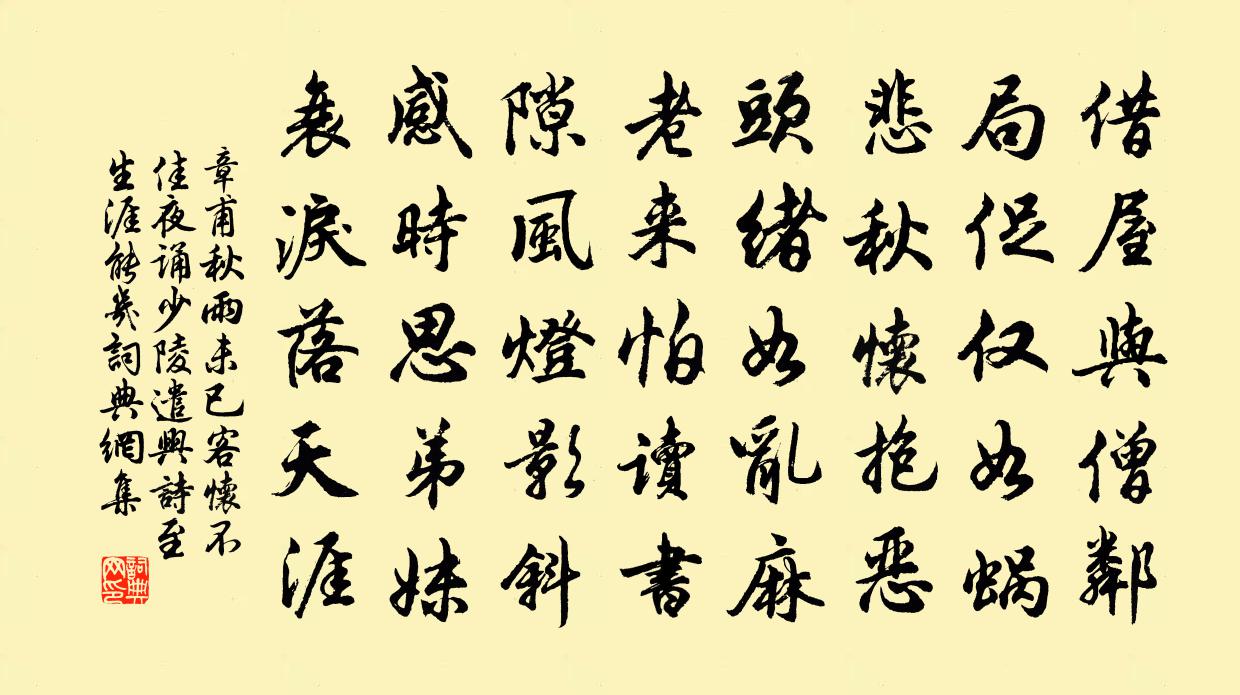 借屋與僧鄰
局促仅如蜗
悲秋懷抱惡
頭緒如亂麻
老来怕讀書
隙風燈影斜
感時思弟妹
衰淚落天涯
章甫秋雨未已客懷不
佳夜诵少陵遣興詩至
生涯能幾詞典網集
詞典
网印